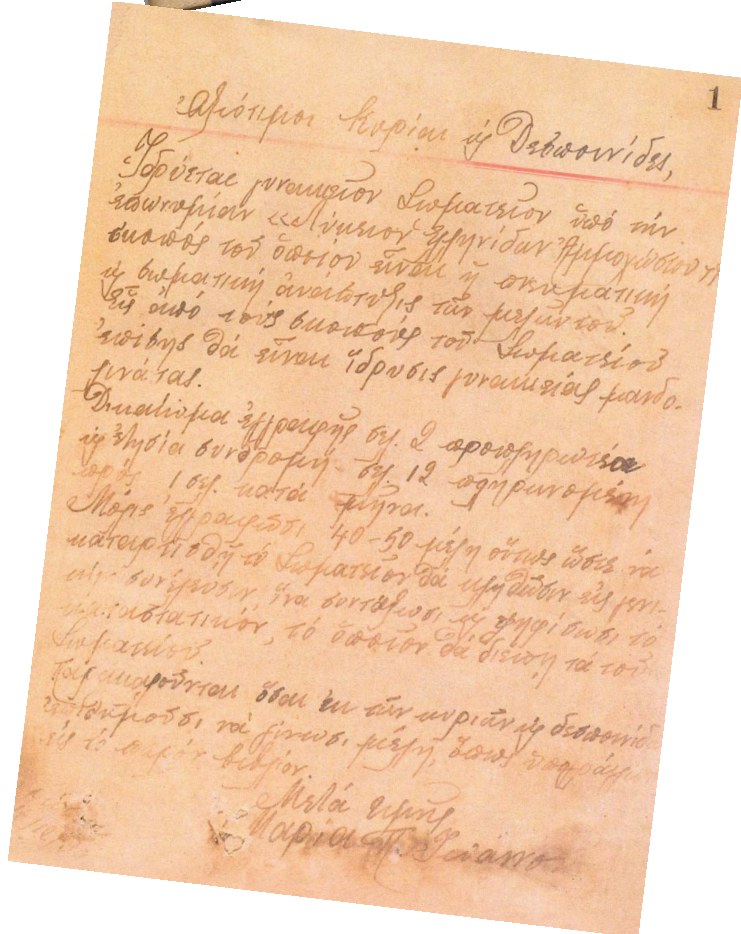 1
Ἀξιότιμοι Κυρίαι κ Δεσποινίδες,
Ἱδρύεται γυναικεῖον Σωματεῖον ὑπό τήν
ἐπωνυμίαν «Λύκειον Ἑλληνίδων Ἀμμοχώστου»
σκοπός τοῦ ὁποίου εἶναι ἡ πνευματική
κ σωματική ἀνάπτυξις τῶν μελῶν του.
Εἷς ἀπό τούς σκοπούς τοῦ Σωματείου
ἐπίσης θά εἶναι ἵδρυσις γυναικείας μανδο-
λινάτας.
Δικαίωμα ἐγγραφῆς σελ. 2 προπληρωτέα
κ ἐτησία συνδρομή σελ. 12 πληρωνομένη
πρός 1 σελ. κατά μῆνα.
Μόλις ἐγγραφῶσι 40-50 μέλη οὕτως ὥστε νά
καταρτισθῇ τό Σωματεῖον θά κληθῶσιν εἰς γενι-
κήν συνέλευσιν ἵνα συντάξωσι κ ψηφίσωσι τό
καταστατικόν, τό ὁποῖον θά διέπῃ τά τοῦ
Σωματείου.
Παρακαλοῦνται ὅσαι ἐκ τῶν κυριῶν κ δεσποινίδων
ἐπιθυμοῦσι νά γίνωσι μέλη, ὅπως ὑπογράψωσι
εἰς τό παρόν βιβλίον.
Μετά τιμῆς
Μαρία Π. Ἰωάννου